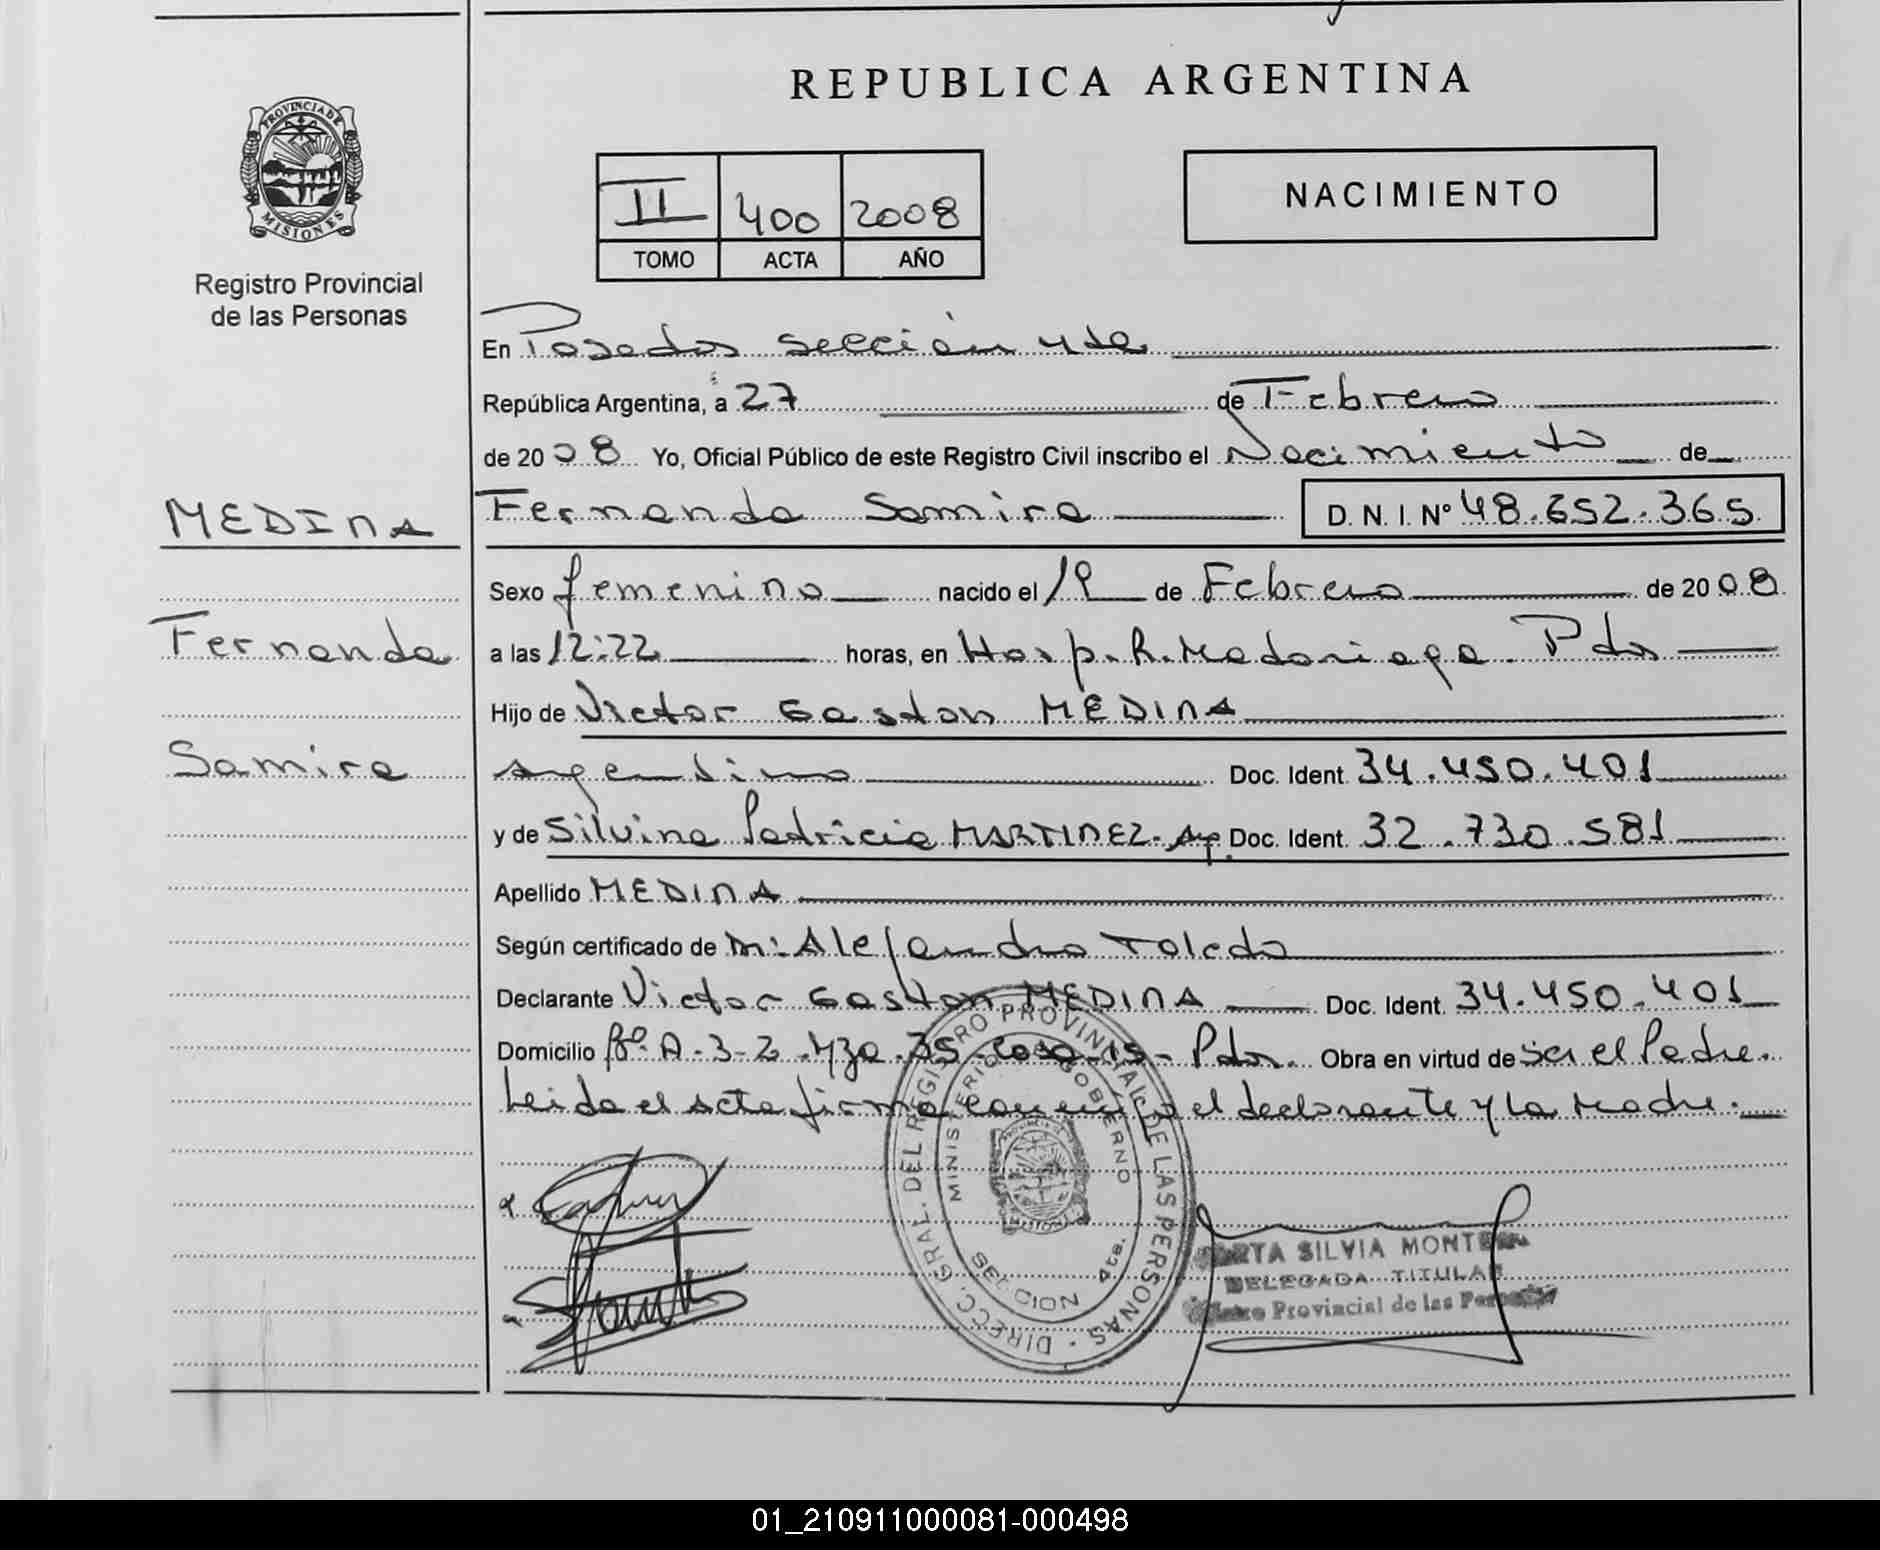 REPUBLICA ARGENTINA
PROVINCIA DE MISIONES
Registro Provincial
de las Personas
II 400 2008
TOMO ACTA AÑO
NACIMIENTO
En Posadas sección 4ta
República Argentina, a 27 de Febrero
de 2008 Yo, Oficial Público de este Registro Civil inscribo el Nacimiento de
MEDINA
Fernanda Samira D. N. I. Nº 48.652.365
Sexo femenino nacido el 19 de Febrero de 2008
Fernanda
a las 12:22 horas, en Hosp. R. Madariaga. Pdas
Hijo de Victor Gaston MEDINA
Samira
Argentino Doc. Ident. 34.450.401
y de Silvina Patricia MARTINEZ - Arg. Doc. Ident. 32.730.581
Apellido MEDINA
Según certificado de M: Alejandro Toledo
Declarante Victor Gaston MEDINA Doc. Ident. 34.450.401
Domicilio Bº. A-3-2. Mza. 35 - Casa 15 - Pdas. Obra en virtud de Ser el Padre.
Leida el acta firma conmigo el declarante y la Madre.
DIRECC. GRAL. DEL REGISTRO PROVINCIAL DE LAS PERSONAS
MINISTERIO DE GOBIERNO
SECCION 4ta.
SILVIA MONTE
DELEGADA TITULAR
Provincial de las
01_210911000081-000498